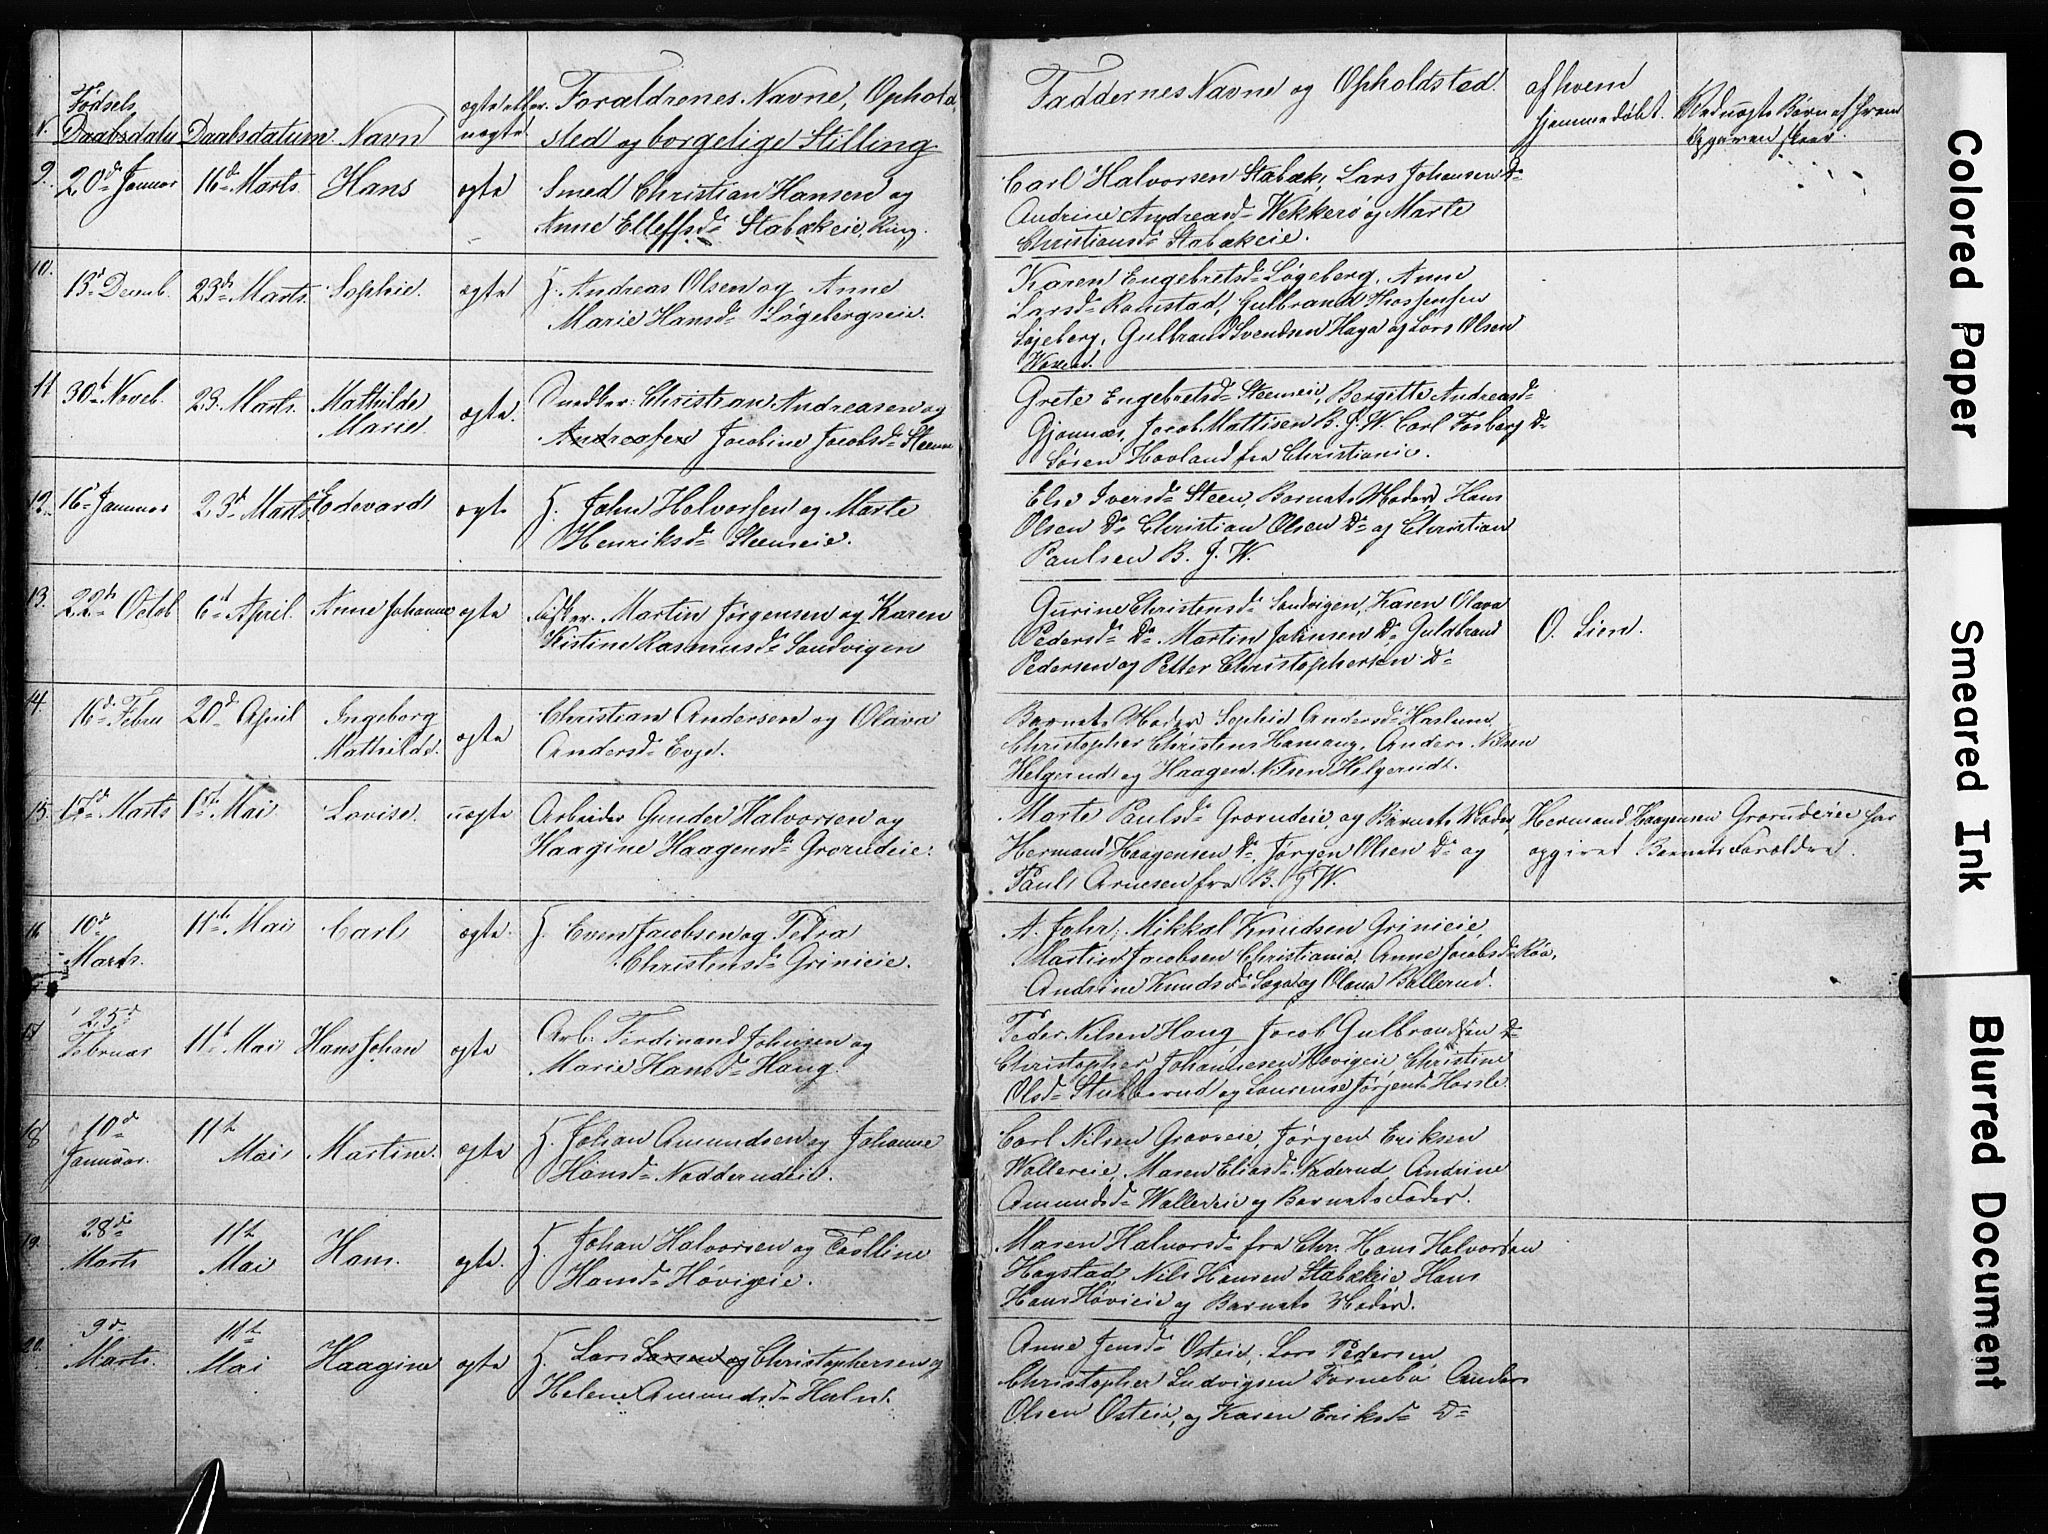 N. Fødsels Daabsdatu Daabsdatum Navn ægte eller uægte Forældrenes Navne, Ophold sted og borgelige Stilling. Faddernes Navne og Opholdsted. af hvem hjemmedøbt.
9. 20d Januar 16d Marts. Hans ægte Smed Christian Hansen og
Anne Elleffsd Stabækeie, Ring.
Carl Halvorsen Stabæk, Lars Johansen Do
Andrine Andreasd Wekkerø og Marte
Christiansd Stabækeie.
10. 13d Decemb. 23d Marts. Sophie. ægte H. Andreas Olsen og Anne
Marie Hansd Løgebergseie.
Karen Engebretsd Løgeberg, Anne
Larsd Ramstad, Gulbrand
Løgeberg, Gulbrand Svendsen Haga og Lars Olsen
11 30t Noveb 23. Marts. Mathilde
Marie ægte. Snedker Christian Andreasen og
Andreasen Jacobine Jacobsd
Grete Engebretsd Steeneie, Bergitte Andreasd
Gjønnæs, Jacob Mattisen B. J. W. Carl Fosberg Do
Søren Hovland fra Christiania.
12. 16d Januar 23d Marts Edevard ægte H. John Helvorsen og Marte
Henriksd Steeneie.
Else Iversd Steen, Barnets Moder, Hans
Olsen Do Christian Olsen Do og Christian
Paulsen B. J. W.
13. 22d Octob 6d April. Anne Johanne ægte Fisker. Martin Jørgensen og Karen
Kistine Rasmusd Sandvigen
Gurine Christensd Sandvigen, Karen Olava
Pedersd Do Martin Johnsen Do Guldbrand
Pedersen og Petter Christophersen Do
O. Lien.
14. 16d Febru 20d April Ingeborg
Mathilde. ægte Christian Andersen og Olava
Andersd Evje.
Barnets Moder Sophie Andersd Haslum,
Christopher Christens Hamang, Anders Nilsen
Helgerud og Haagen Nilsen Helgerud.
15. 17d Marts 1ste Mai Lovise. uægte Arbeider Gunder Halvorsen og
Haagine Haagensd Grorudeie.
Marte Paulsd Grorudeie, og Barnets Moder,
Hermand Haagensen Do Jørgen Olsen Do og
Paul Arnesen fra B. J. W.
Hermand Haagensen Grorudeie har
opgivet Barnets Forældre.
16 10d
Marts. 11te Mai Carl ægte. H. Even Jacobsen og Petra
Christensd Grinieie.
A. Johr, Mikkal Knudsen Grinieie,
Martin Jacobsen Christiania, Anne Jacobsd Røa,
Andrine Knudsd Søgal og Olava Ballerud.
17 25d
Februar 11t Mai Hans Johan ægte Arb: Ferdinand Johnsen og
Marie Hansd Haug.
Peder Nilsen Haug, Jacob Gulbrandsen Do
Christopher Johannesen Høvigeie Christine
Olsd Stubberud og Laurense Jørgend Horsle
18 10d
Januar. 11te
Mai Martine. ægte H. Johan Amundsen og Johanne
Hansd Nadderudeie.
Carl Nilsen Gravseie, Jørgen Eriksen
Wallereie, Maren Eliasd Naderud, Andrine
Amundsd Wallereie og Barnets Fader.
19. 28d
Marts 11te
Mai Hans. ægte. H. Johan Halvorsen og
Hansd Høvigeie.
Maren Halvorsd fra Chr. Hans Halvorsen
Hagstad Nils Hansen Stabækeie Hans
Hans Høvieie og Barnets Moder.
20. 9d
Marts. 11te
Mai Haagine ægte H. Lars Larsen og Christophersen og
Helene Amundsd Holm.
Anne Jensd Osteie, Lars Pedersen
Christopher Ludvigsen Fornebo Anders
Olsen Osteie, og Karen Eriksd Do
Colored Paper
Smeared Ink
Blurred Document